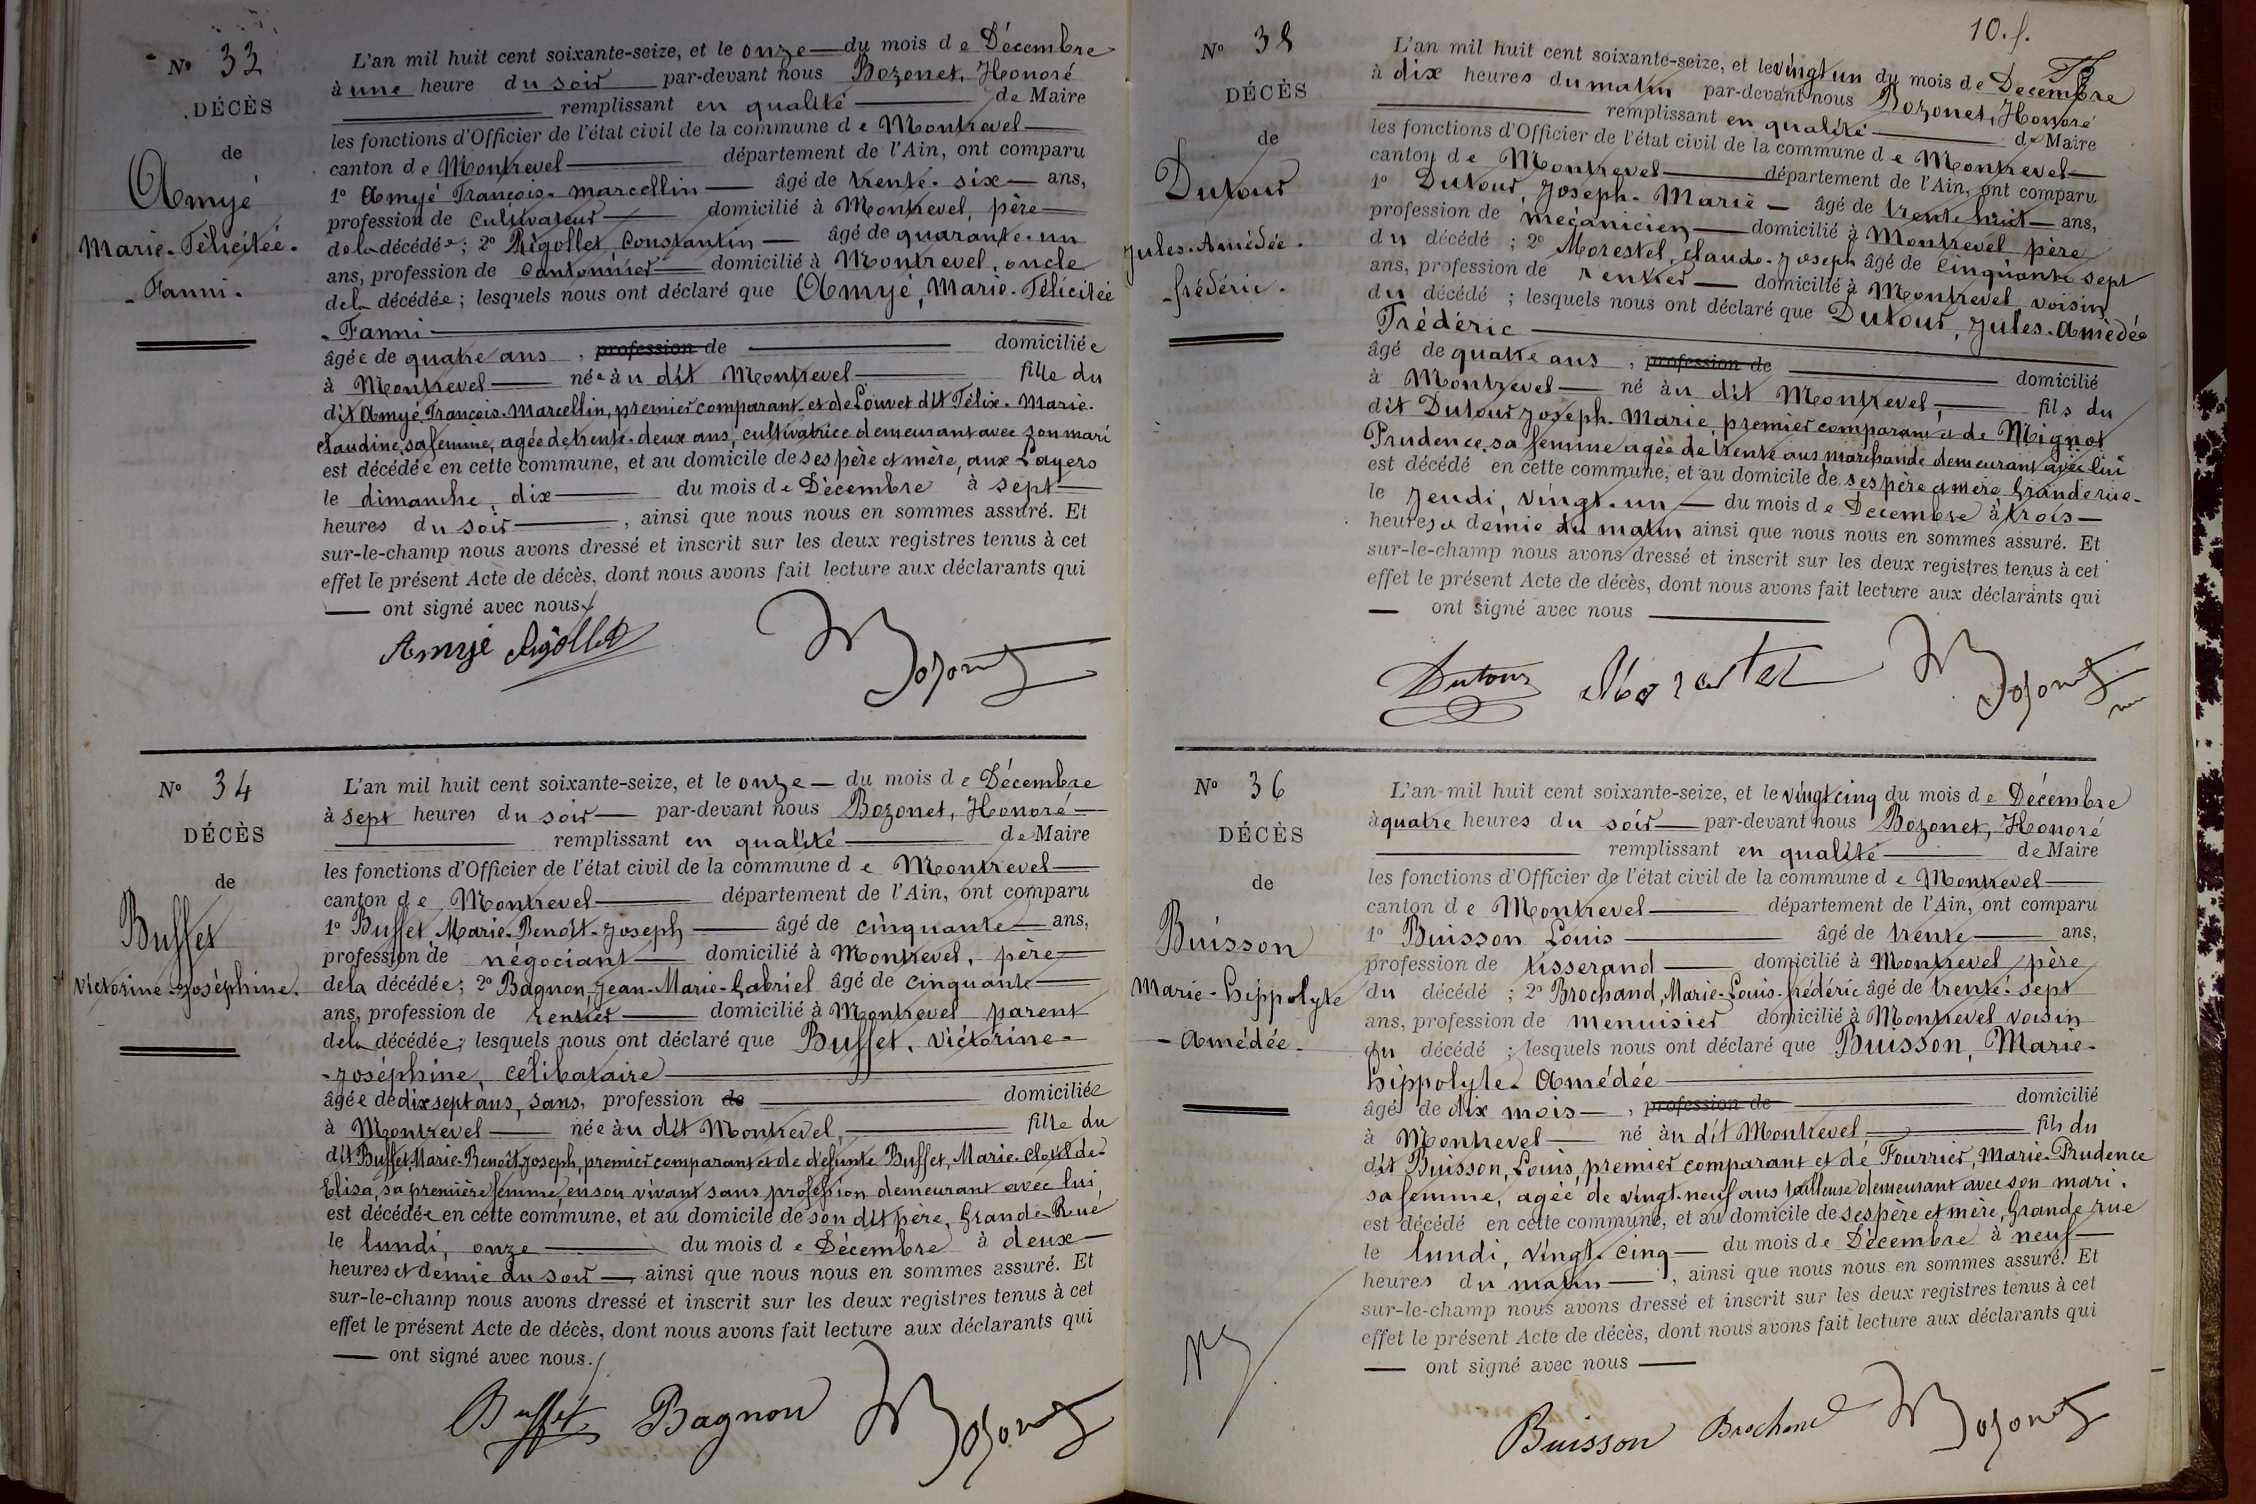 N° 33
DÉCÈS
de
Amyé
Marie-Félicitée-
-Fanni-
L'an mil huit cent soixante-seize, et le onze du mois de Décembre
à une heure du soir par-devant nous Bozonet, Honoré
remplissant en qualité de Maire
les fonctions d'Officier de l'état civil de la commune de Montrevel
canton de Montrevel département de l'Ain, ont comparu
1° Amyé François-marcellin âgé de trente-six ans,
profession de cultivateur domicilié à Montrevel, père
de la décédée; 2° Rigollet Constantin âgé de quarante-un
ans, profession de cantonnier domicilié à Montrevel, oncle
de la décédée; lesquels nous ont déclaré que Amyé, Marie-Félicitée
-Fanni
âgée de quatre ans, profession de domiciliée
à Montrevel née àu dit Montrevel fille du
dit Amyé François-Marcellin, premier comparant et de Louvet dit Félix-Marie-
claudine, sa femme, agée de trente-deux ans, cultivatrice demeurant avec son mari
est décédée en cette commune, et au domicile de ses père et mère, aux Layers
le dimanche, dix du mois de Décembre à sept
heures du soir, ainsi que nous nous en sommes assuré. Et
sur-le-champ nous avons dressé et inscrit sur les deux registres tenus à cet
effet le présent Acte de décès, dont nous avons fait lecture aux déclarants qui
ont signé avec nous
Amyé Rigollet Bozonet
N° 34
DÉCÈS
de
Buffet
Victorine-Joséphine.
L'an mil huit cent soixante-seize, et le onze du mois de Décembre
à sept heures du soir par-devant nous Bozonet, Honoré
remplissant en qualité de Maire
les fonctions d'Officier de l'état civil de la commune de Montrevel
canton de Montrevel département de l'Ain, ont comparu
1° Buffet, Marie-Benoît-Joseph âgé de cinquante ans,
profession de négociant domicilié à Montrevel, père
de la décédée; 2° Bagnon, Jean-Marie-Gabriel âgé de cinquante
ans, profession de rentier domicilié à Montrevel parent
de la décédée; lesquels nous ont déclaré que Buffet, Victorine-
-Joséphine, célibataire
âgée de dix sept ans, sans, profession de domiciliée
à Montrevel née àu dit Montrevel, fille du
dit Buffet, Marie-Benoît-Joseph, premier comparant et de défunte Buffet, Marie-Clotilde-
Elisa, sa première femme, en son vivant sans profession demeurant avec lui
est décédée en cette commune, et au domicile de son dit père, Grande Rue
le lundi, onze du mois de Décembre à deux
heures et demie du soir, ainsi que nous nous en sommes assuré. Et
sur-le-champ nous avons dressé et inscrit sur les deux registres tenus à cet
effet le présent Acte de décès, dont nous avons fait lecture aux déclarants qui
ont signé avec nous.
Buffet Bagnon Bozonet
10. f.
N° 35
DÉCÈS
de
Dutour
Jules-Amédée-
-frédéric-
L'an mil huit cent soixante-seize, et le vingt un du mois de Décembre
à dix heures du matin par-devant nous Bozonet, Honoré
remplissant en qualité de Maire
les fonctions d'Officier de l'état civil de la commune de Montrevel
canton de Montrevel département de l'Ain, ont comparu
1° Dutour, Joseph-Marie âgé de trente huit ans,
profession de mécanicien domicilié à Montrevel père
du décédé; 2° Morestel, claude-Joseph âgé de cinquante sept
ans, profession de rentier domicilié à Montrevel voisin
du décédé; lesquels nous ont déclaré que Dutour, Jules-Amédée
Frédéric
âgé de quatre ans, profession de domicilié
à Montrevel né àu dit Montrevel, fils du
dit Dutour Joseph-Marie, premier comparant et de Mignot
Prudence, sa femme agée de trente ans marchande demeurant avec lui
est décédé en cette commune, et au domicile de ses père et mère Grande rue-
le jeudi, vingt-un du mois de Décembre à trois
heures et demie du matin ainsi que nous nous en sommes assuré. Et
sur-le-champ nous avons dressé et inscrit sur les deux registres tenus à cet
effet le présent Acte de décès, dont nous avons fait lecture aux déclarants qui
ont signé avec nous
Dutour Morestel Bozonet
N° 36
DÉCÈS
de
Buisson
Marie-hippolyte
-Amédée-
L'an mil huit cent soixante-seize, et le vingt cinq du mois de Décembre
à quatre heures du soir par-devant nous Bozonet, Honoré
remplissant en qualité de Maire
les fonctions d'Officier de l'état civil de la commune de Montrevel
canton de Montrevel département de l'Ain, ont comparu
1° Buisson Louis âgé de trente ans,
profession de tisserand domicilié à Montrevel père
du décédé; 2° Brochand, Marie-Louis-frédéric âgé de trente-sept
ans, profession de menuisier domicilié à Montrevel voisin
du décédé; lesquels nous ont déclaré que Buisson, Marie-
hippolyte-Amédée
âgé de dix mois, profession de domicilié
à Montrevel né àu dit Montrevel fils du
dit Buisson, Louis, premier comparant et de Fourrier, Marie-Prudence
sa femme, agée de vingt-neuf ans tailleuse demeurant avec son mari.
est décédé en cette commune, et au domicile de ses père et mère, Grande rue
le lundi, vingt-cinq du mois de Décembre à neuf
heures du matin, ainsi que nous nous en sommes assuré. Et
sur-le-champ nous avons dressé et inscrit sur les deux registres tenus à cet
effet le présent Acte de décès, dont nous avons fait lecture aux déclarants qui
ont signé avec nous
Buisson Brochand Bozonet